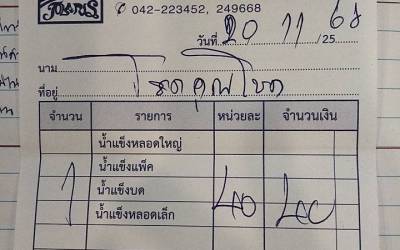 042-223452, 249668
วันที่ 20 11 /25 68
นาม
ที่อยู่
จำนวน รายการ หน่วยละ จำนวนเงิน
น้ำแข็งหลอดใหญ่
น้ำแข็งแพ็ค
1 น้ำแข็งบด 40 40
น้ำแข็งหลอดเล็ก